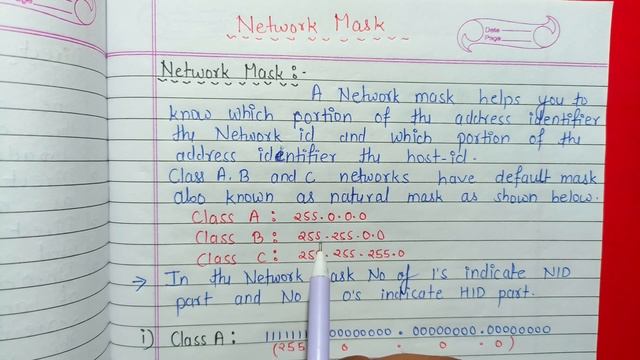 Network Mask
Date
Page
Network Mask :-
A Network mask helps you to
know which portion of the address identifier
the Network id and which portion of the
address identifier the host-id.
Class A. B and C networks have default mask
also known as natural mask as shown below.
Class A : 255.0.0.0
Class B : 255.255.0.0
Class C : 255.255.255.0
→ In the Network Mask No of 1's indicate NID
part and No 0's indicate HID part.
i) Class A : 11111111 00000000 . 00000000 . 00000000
(255 0 . 0 . 0)